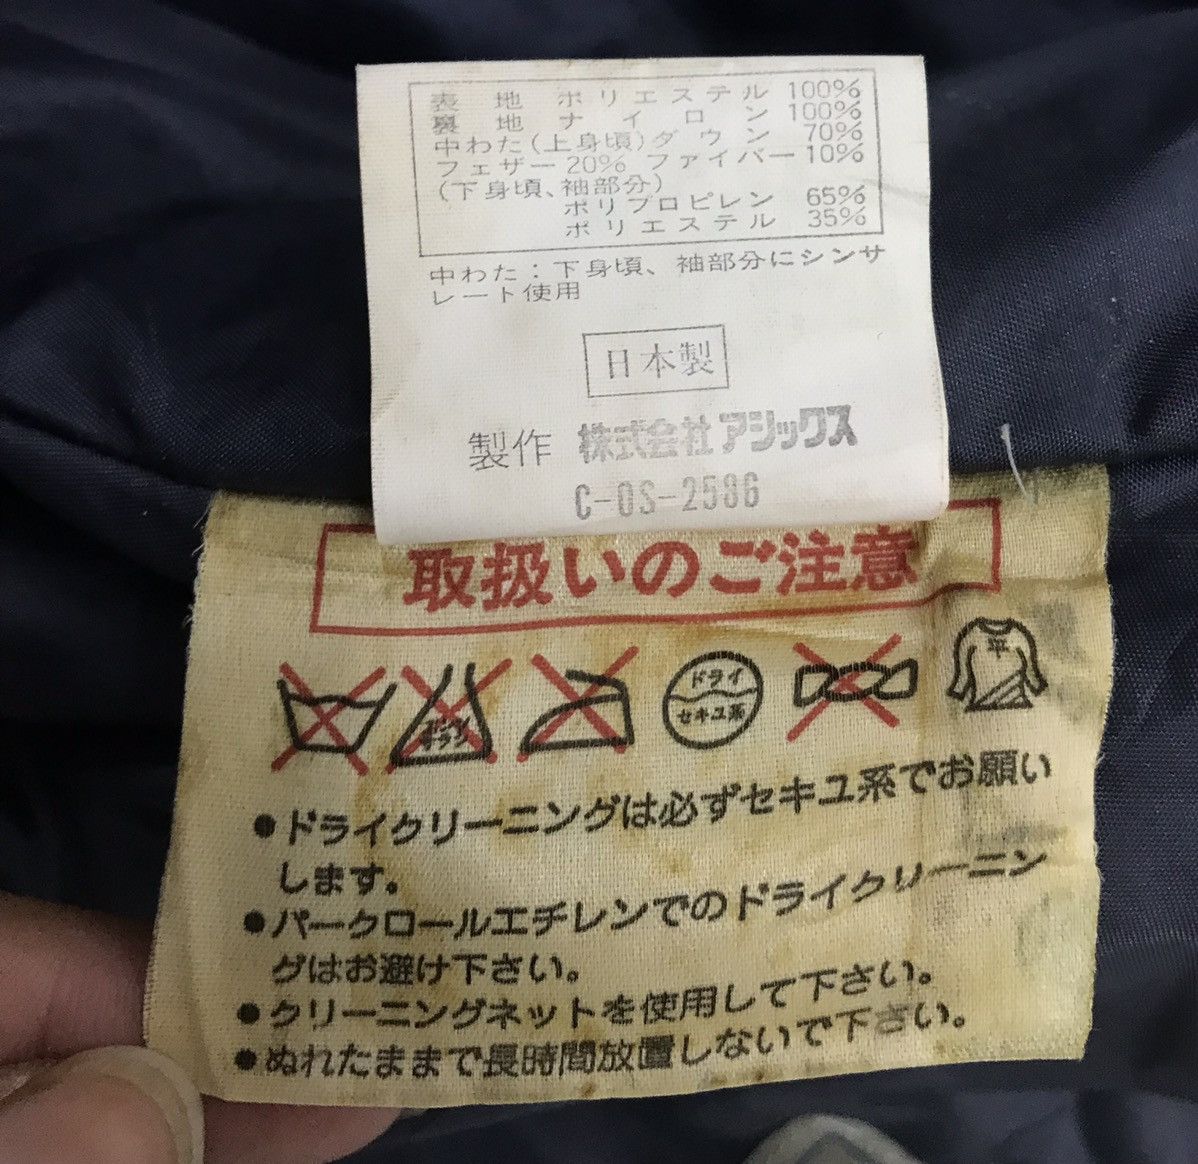 表地 ポリエステル 100%
裏地 ナイロン 100%
中わた(上身頃)ダウン 70%
フェザー 20% ファイバー 10%
(下身頃、袖部分)
ポリプロピレン 65%
ポリエステル 35%
中わた:下身頃、袖部分にシンサ
レート使用
日本製
製作 株式会社アシックス
C-OS-2586
取扱いのご注意
ドライ
セキユ系
平
●ドライクリーニングは必ずセキユ系でお願い
します。
●パークロールエチレンでのドライクリーニン
グはお避け下さい。
●クリーニングネットを使用して下さい。
●ぬれたままで長時間放置しないで下さい。